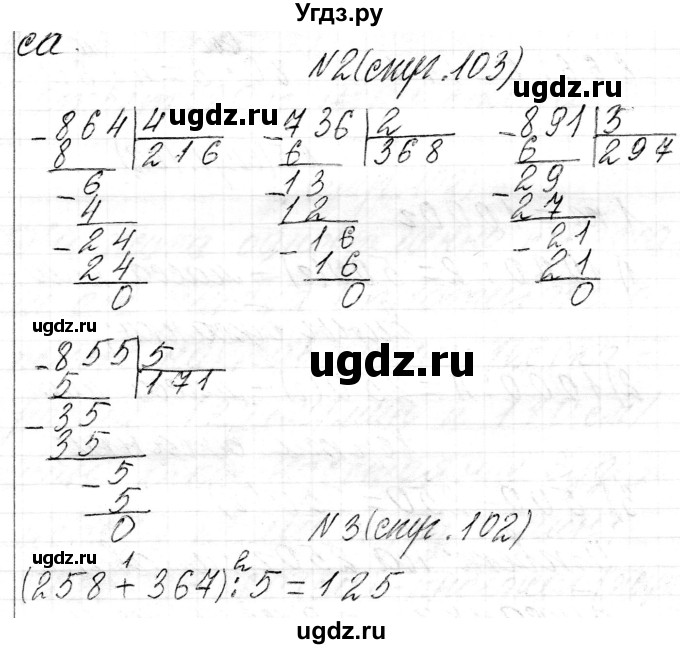 Угдз.ру
са.
N2(стр.103)
-864 4 ugdz.ru -736 2 ugdz.ru -891 3
8 216 6 368 6 297
-6 -13 -29
4 12 27
-24 -16 -21
24 16 21
0 0 0
ugdz.ru
-855 5 ugdz.ru
5 171
-35
35
-5
5
0 N3(стр.102)
ugdz.ru
1 2
(258+367):5=125
ugdz.ru
ugdz.ru